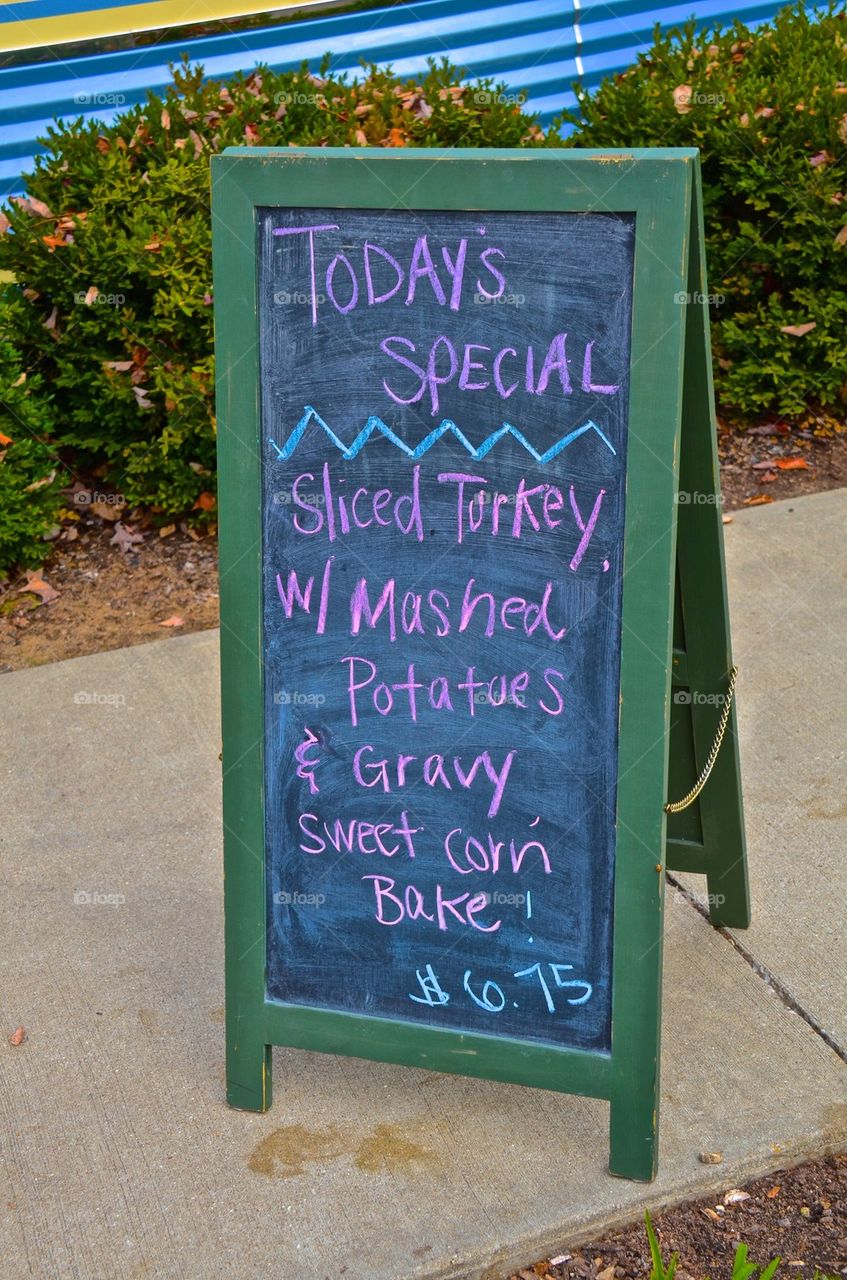 TODAY'S
SPECIAL
Sliced Turkey,
w/ Mashed
Potatoes
& Gravy
sweet corn
Bake !
$6.75